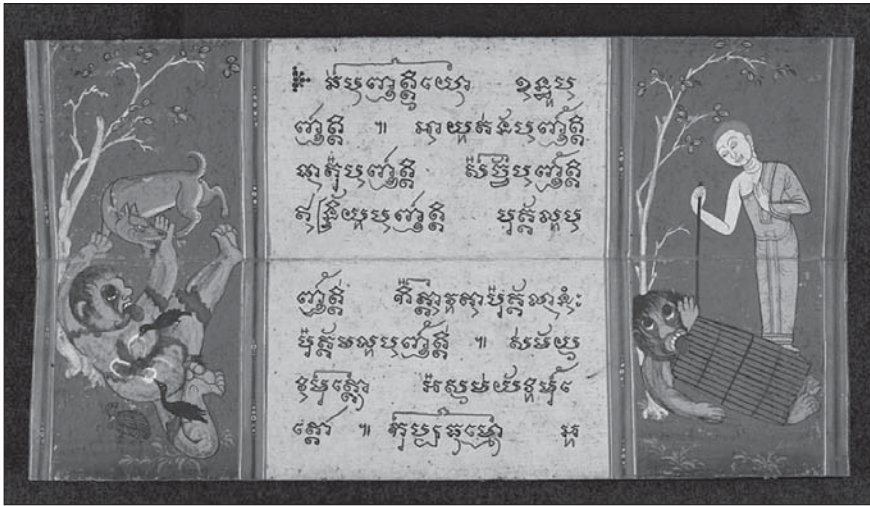 ឆបញ្ញត្តិយោ ខន្ធប
ញ្ញត្តិ ॥ អាយតនបញ្ញត្តិ
ធាតុបញ្ញត្តិ សច្ចបញ្ញត្តិ
ឥន្ទ្រិយបញ្ញត្តិ បុគ្គលប
ញ្ញត្តិ កិត្តាវតាបុគ្គលានំ
បុគ្គលបញ្ញត្តិ ॥ សមយ
វិមុត្តោ អសមយវិមុ
ត្តោ ॥ កុប្បធម្មោ អ